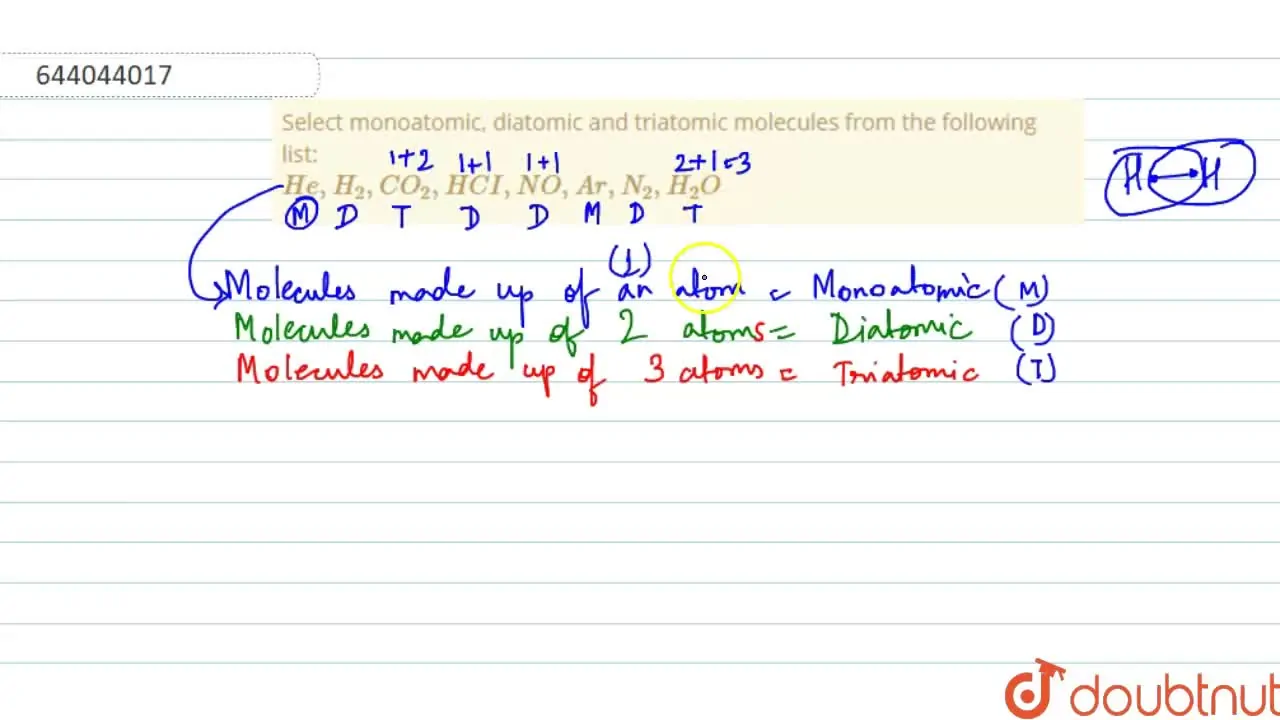 644044017
Select monoatomic, diatomic and triatomic molecules from the following
list:
1+2 1+1 1+1 2+1=3
He, H₂, CO₂, HCI, NO, Ar, N₂, H₂O
M D T D D M D T
H H
(1)
Molecules made up of an atom = Monoatomic (M)
Molecules made up of 2 atoms = Diatomic (D)
Molecules made up of 3 atoms = Triatomic (T)
doubtnut